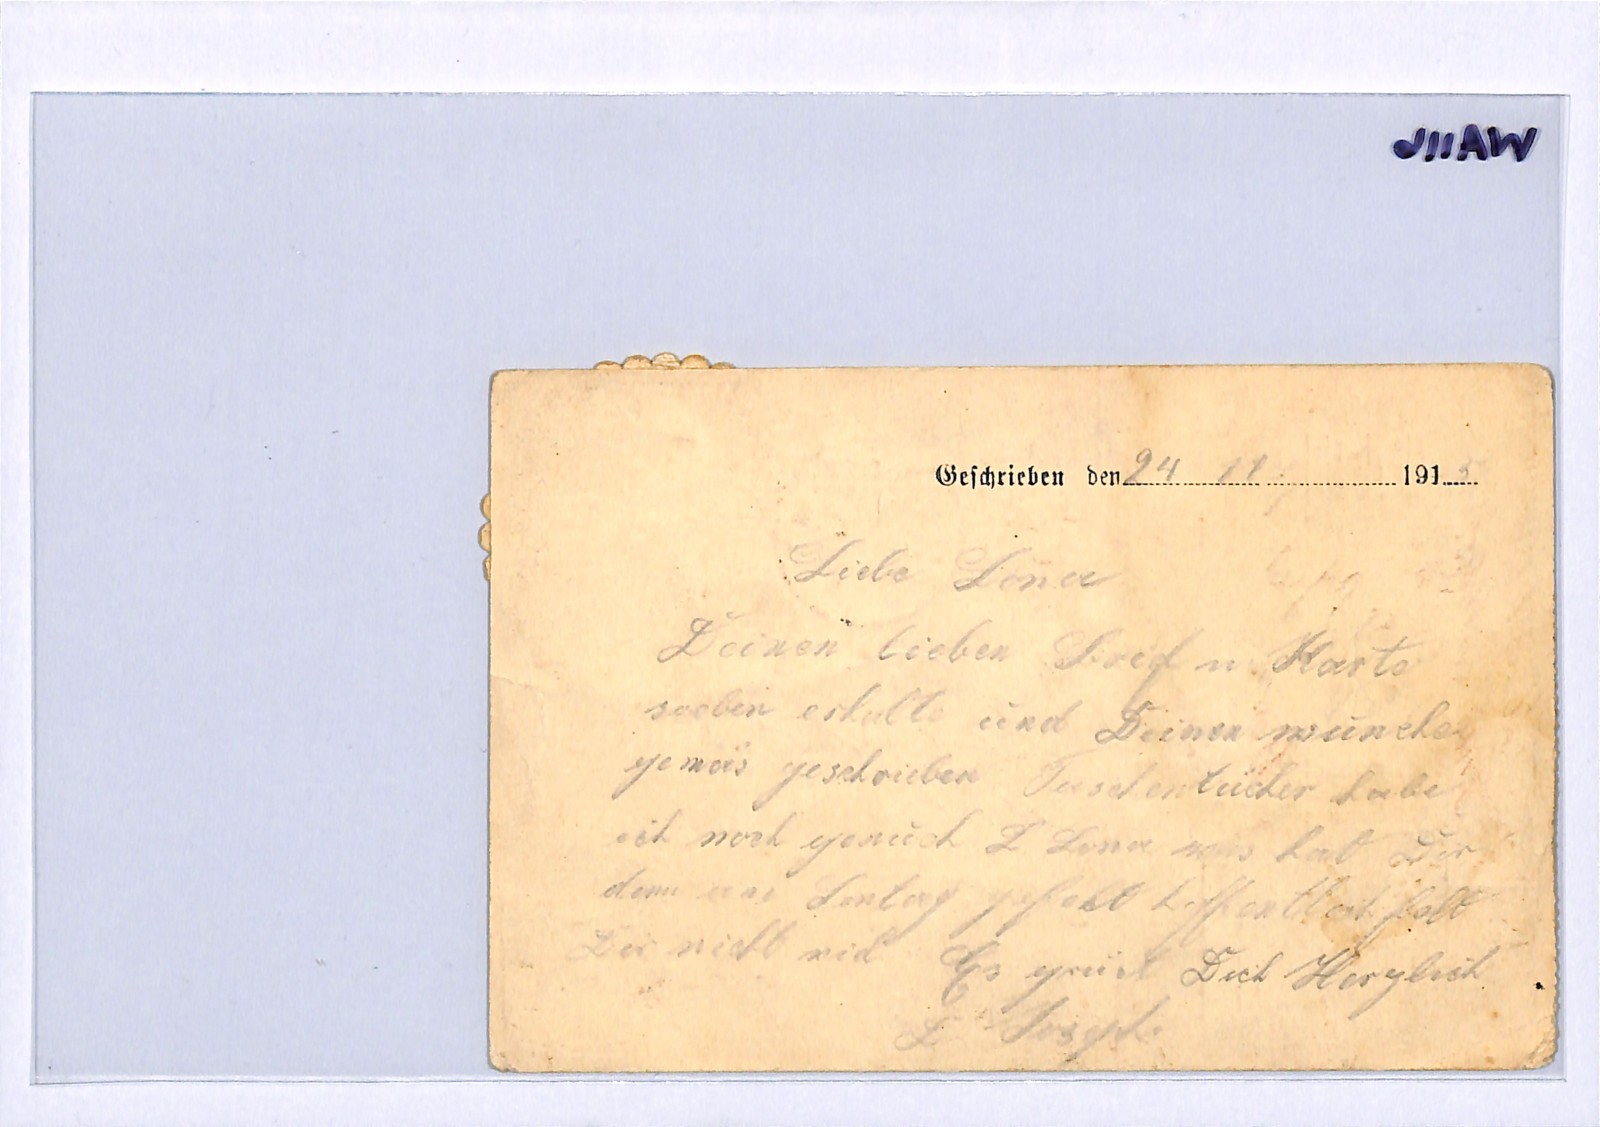 WAIIJ
Geschrieben den 24 11 1915
Liebe Lona
Deinen lieben Brief u Karte
soeben erhalte und Deinen wunche
gemäs geschrieben Taschentücher habe
ich noch genuch L Lona was hat Dir
denn am Sontag gefehlt hoffentlich fehlt
Dir nicht vil Es grüst Dich Herzlich
L Joseph